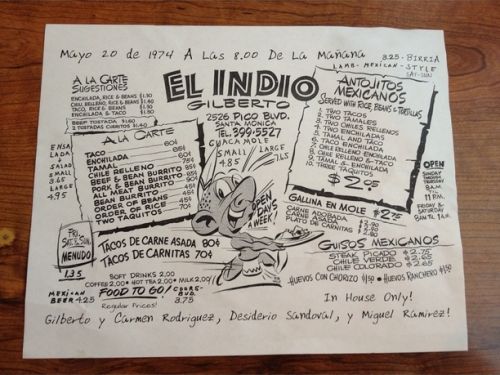 Mayo 20 de 1974 A Las 8.00 De La Mañana
3.25-BIRRIA
LAMB-MEXICAN-STYLE
(SAT-SUN)
A LA CARTE
SUGESTIONES
ENCHILADA, RICE & BEANS $1.40
CHILI RELLENO, RICE & BEANS $1.50
ENCHILADA, RICE & BEANS
ENCHILADA & TACO
BEEF TOSTADA $1.60
2 TOSTADAS CURRITOS $1.40
EL INDIO
GILBERTO
2526 PICO BLVD.
SANTA MONICA
TEL. 399-5527
GUACAMOLE
SMALL LARGE
4.85 7.65
ANTOJITOS
MEXICANOS
SERVED WITH RICE, BEANS & TORTILLAS
1. TWO TACOS
2. TWO TAMALES
3. TWO CHILES RELLENOS
4. TWO ENCHILADAS
5. TAMAL AND TACO
6. TACO ENCHILADA
7. CHILE RELLENO ENCHILADA
8. CHILE RELLENO & TAMAL
9. ENCHILADA & TAMAL
10. THREE TAQUITOS
$2.05
ENSALADA
SALAD
SMALL
3.65
LARGE
4.95
A LA CARTE
TACO
ENCHILADA
TAMAL
CHILE RELLENO
BEEF & BEAN BURRITO
PORK & BEAN BURRITO
ALL MEAT BURRITO
BEAN BURRITO
ORDER OF BEANS
ORDER OF RICE
TWO TAQUITOS
OPEN
SUNDAY
THROUGH
THURSDAY
8 A.M.
TIL
11 P.M.
FRIDAY &
SATURDAY
8 A.M. TIL 1 A.M.
OPEN
7 DAYS
A WEEK!
GALLINA EN MOLE $2.75
CARNE ADOBADA
CARNE ASADA
PLATO DE CARNITAS
FRI.
SAT. & SUN.
MENUDO
1.35
TACOS DE CARNE ASADA 80¢
TACOS DE CARNITAS 70¢
GUISOS MEXICANOS
STEAK PICADO $2.75
CHILE VERDE $2.65
CHILE COLORADO $2.65
SOFT DRINKS 2.00
COFFEE 2.00 • HOT TEA 2.00 • MILK 2.00
HUEVOS CON CHORIZO $1.50 • HUEVOS RANCHERO $1.50
MEXICAN
BEER 4.25
FOOD TO GO!
COORS-
BUD.
3.75
Regular Prices!
In House Only!
Gilberto y Carmen Rodriguez, Desiderio Sandoval, y Miguel Ramirez!